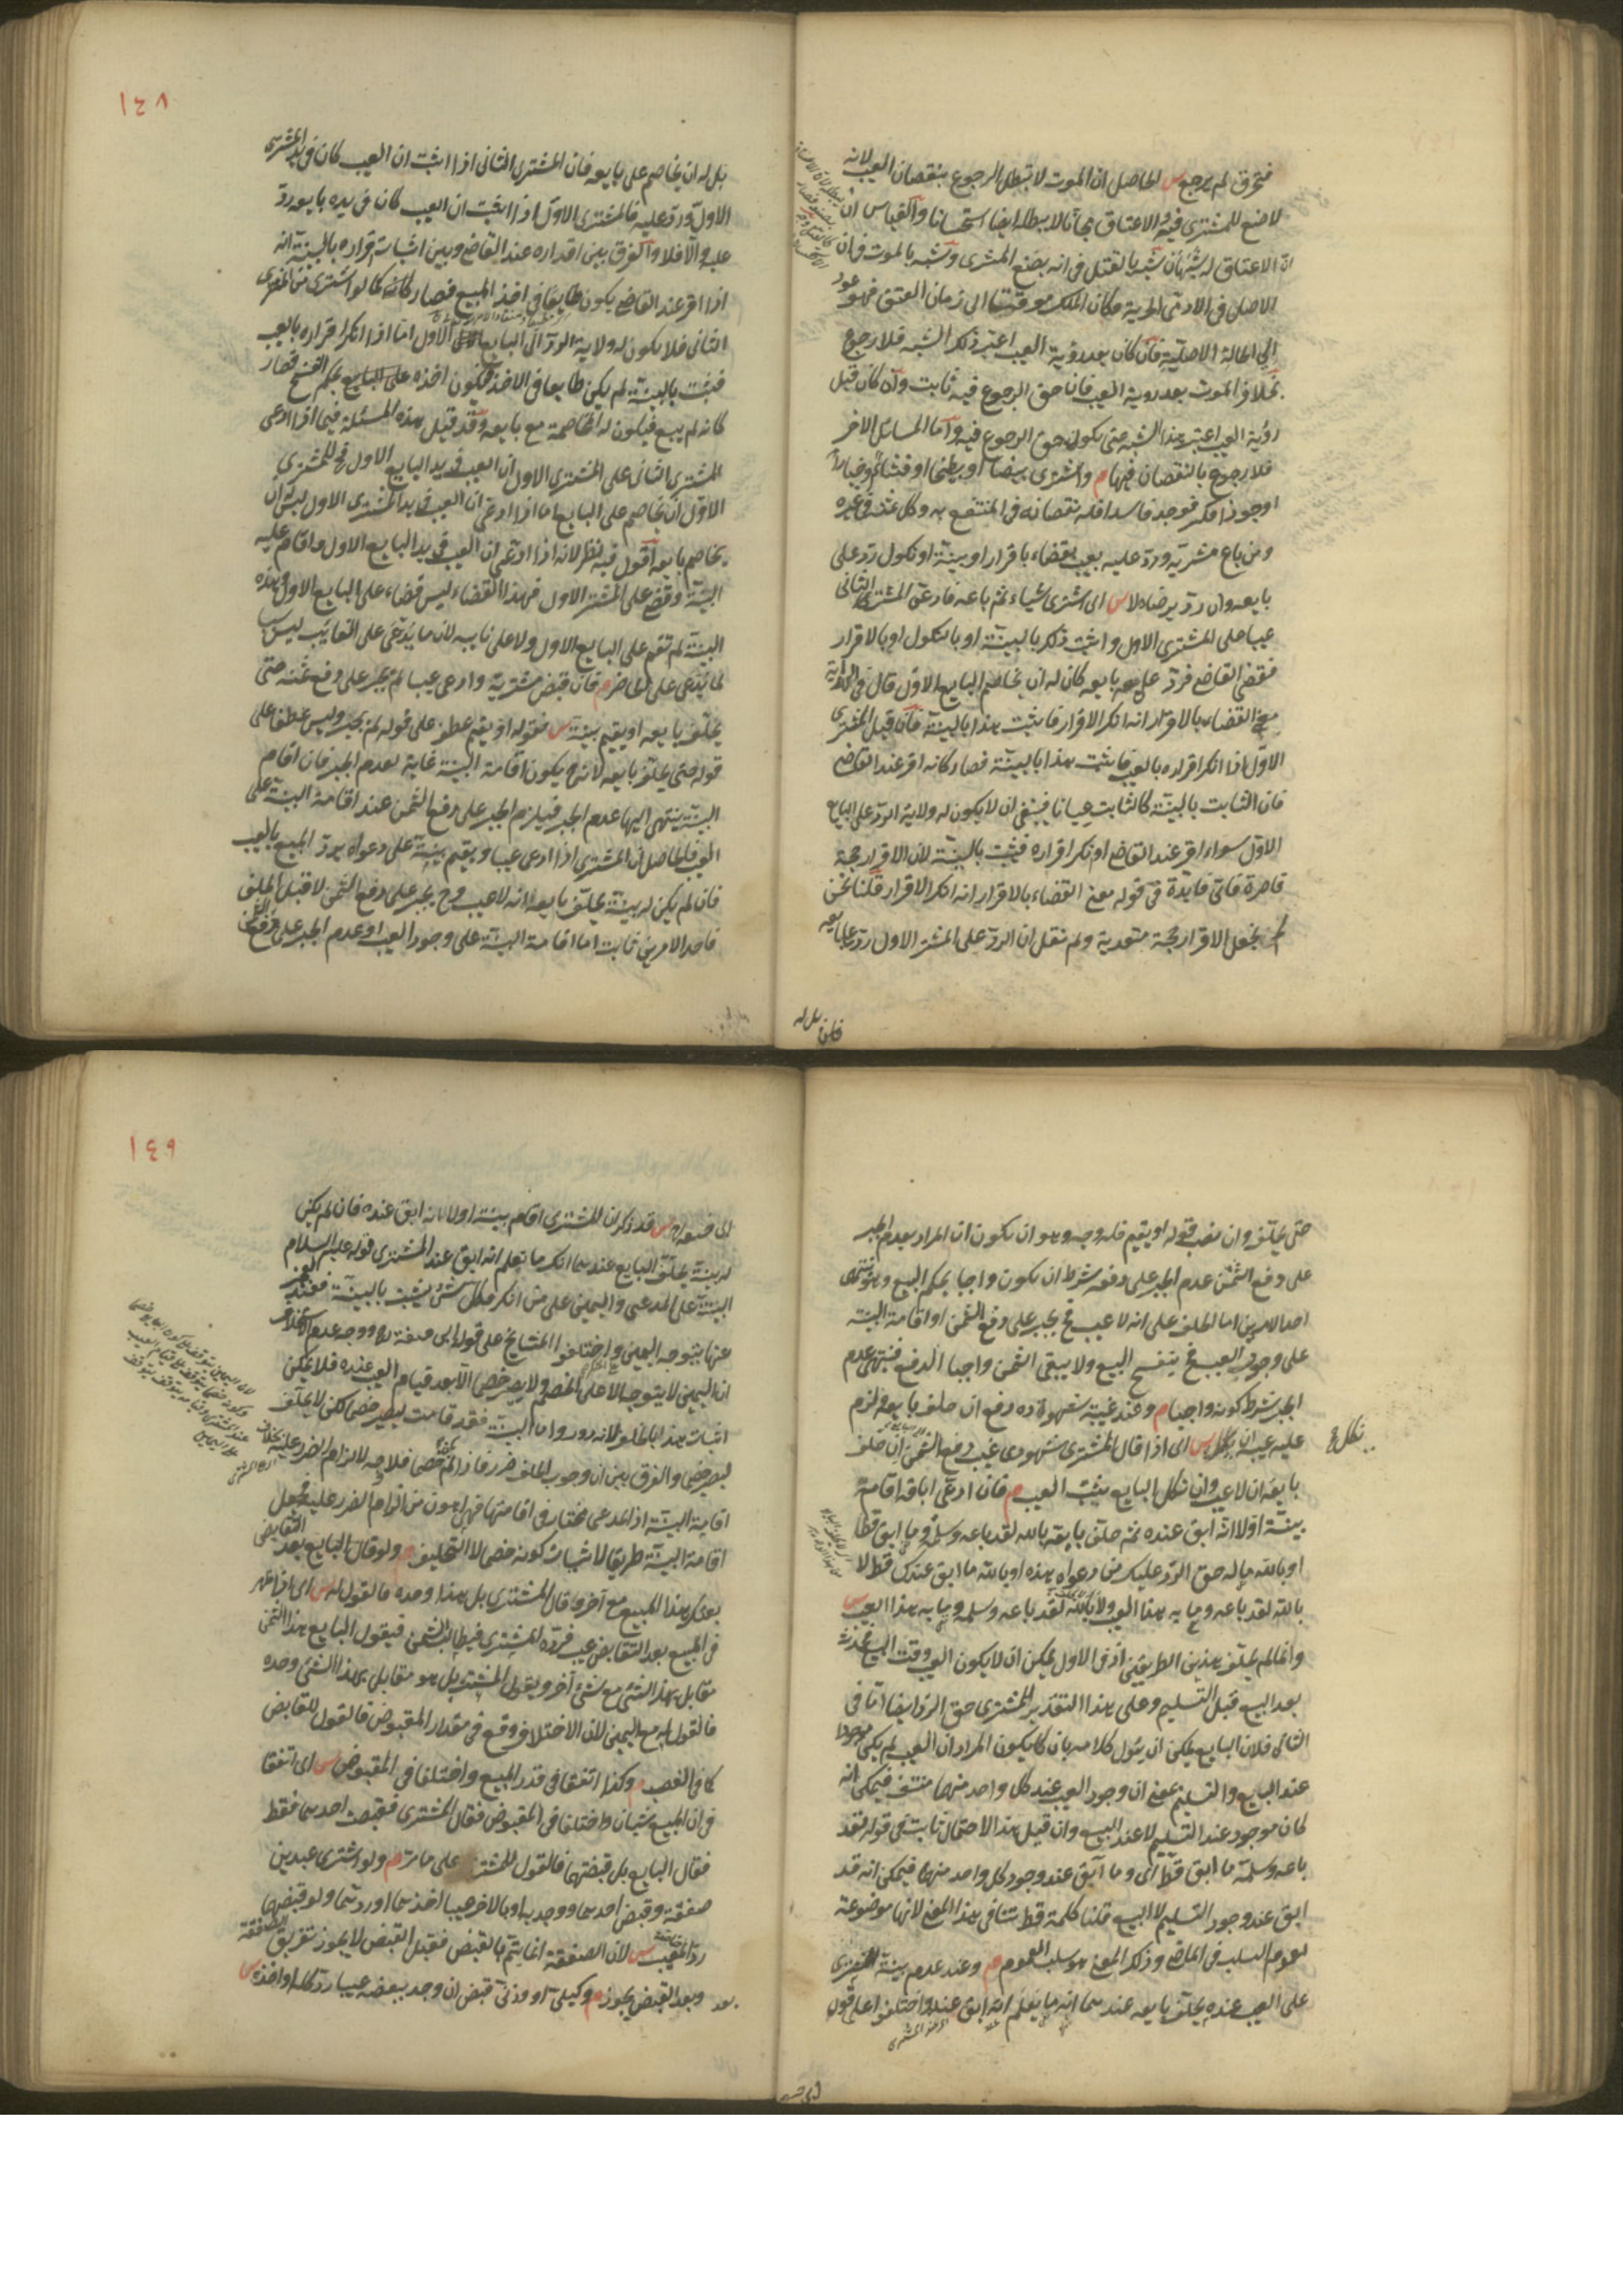 فتخرق لم يرجع س الحاصل ان الموت لا يبطل الرجوع بنقصان العيب لانه
لا صنع للمشترى فيه والاعتاق مجانا لا يبطله ايضا استحسانا والقياس ان
الاعتاق له شبهان شبه بالقتل فى انه بصنع المشترى وشبه بالموت فى ان
الاصل فى الادمى الحرية فكان الملك موقتا الى زمان العتق فهو عود
الى الحالة الاصلية فان كان بعد رؤية العيب اعتبر ذلك الشبه فلا رجوع
بخلاف الموت بعد روية العيب فان حق الرجوع فيه ثابت وان كان قبل
رؤية العيب اعتبر هذا الشبه حتى يكون حق الرجوع فيه واما المسائل الاخر
فلا رجوع بالنقصان فيها م وان شرى بيضا او بطيخا او قثاء او خيارا
او جوزا فكسر فوجد فاسدا فله نقصانه فى المنتفع به وكل ثمنه فى غيره
ومن باع مشريه ورد عليه بعيب بقضاء باقرار او بينة او نكول رد على
بايعه وان رد برضاه لا س اى اشترى شيأ ثم باعه فادعى المشترى الثانى
عيبا على المشترى الاول واثبت ذلك بالبينة او بالنكول او بالاقرار
فقضى القاضى فرد على بايعه كان له ان يخاصم البايع الاول قال فى الهداية
معنى القضاء بالاقرار انه انكر الاقرار فاثبت بهذا بالبينة فان قيل المشترى
الاول اذا انكر اقراره بالعيب فاثبت هذا بالبينة فصار كانه اقر عند القاضى
فان الثابت بالبينة كالثابت عيانا فينبغى ان لا يكون له ولاية الرد على البايع
الاول سواء اقر عند القاضى او نكر اقراره فيثبت بالبينة لان الاقرار حجة
قاصرة فاى فايدة فى قوله معنى القضاء بالاقرار انه انكر الاقرار قلنا نحن
لم نجعل الاقرار حجة متعدية ولم نقل ان الرد على المشتر الاول رد على بايعه
بل له
١٤٨
بل له ان يخاصم على بايعه فان المشترى الثانى اذا اثبت ان العيب كان فى يد المشترى
الاول ورد عليه فالمشترى الاول اذا اثبت ان العيب كان فى يده بايعه رد
عليه والا فلا والفرق بين اقراره عند القاضى وبين اثبات اقراره بالبينة انه
اذا اقر عند القاضى يكون طايعا فى اخذ المبيع فصار كانه كما لو اشترى من المشترى
الثانى فلا يكون له ولاية الرد الى البايع الاول اما اذا انكر اقراره بالعيب
فيثبت بالبينة لم يكن طايعا فى الاخذ فيكون اخذه على البايع بحكم الفسخ فصار
كانه لم يبع فيكون له المخاصمة مع بايعه وقد قيل هذه المسئلة فيما اذا ادعى
المشترى الثانى على المشترى الاول ان العيب فى يد البايع الاول فح للمشترى
الاول ان يخاصم على البايع اما اذا ادعى ان العيب فى يد المشترى الاول ليس له ان
يخاصم بايعه اقول فيه نظر لانه اذا ادعى ان العيب فى يد البايع الاول واقام عليه
البينة وقضى على المشتر الاول فهذا القضاء ليس قضاء على البايع الاول وهذه
البينة لم تقم على البايع الاول ولا على نايبه لان ما يدعى على الغايب ليس سببا
لما يدعى على الحاضر م فان قبض مشريه وادعى عيبا لم يجبر على دفع ثمنه حتى
يحلف بايعه او يقيم بينة س فقوله او يقيم عطف على قوله لم يجبر وليس عطفا على
قوله حتى يحلف بايعه لانه ح يكون اقامة البينة غاية لعدم الجبر فان اقام
البينة ينتهى اليها عدم الجبر فيلزم الجبر على دفع الثمن عند اقامة البينة على
العيب فالحاصل ان المشترى اذا ادعى عيبا ويقيم بينة على دعواه يرد المبيع بالعيب
فان لم يكن له بينة يحلف بايعه انه لا عيب وح يجبر على دفع الثمن لا قبل الحلف
فاحد الامرين ثابت اما اقامة البينة على وجود العيب او عدم الجبر على دفع الثمن
حتى يحلف وان نصب قوله او يقيم فله وجه وهو ان يكون ان المراد بعدم الجبر
على دفع الثمن عدم الجبر على دفعه بشرط ان يكون واجبا بحكم المبيع وهو منتهى
احد الامرين اما الحلف على انه لا عيب فح يجبر على دفع الثمن او اقامة البينة
على وجود العيب فح ينفسخ البيع ولا يبقى الثمن واجبا الدفع فينتهى عدم
الجبر بشرط كونه واجبا م وعند غيبة شهوده دفع ان حلف بايعه ولزم
عليه عيبه ان نكل س اى اذا قال المشترى شهودى غيب دفع الثمن ان حلف
نكل ع
بايعه ان لا عيب وان نكل البايع يثبت العيب م فان ادعى اباقه اقام
بينة اولا انه ابق عنده ثم حلف بايعه بالله لقد باعه وسلمه وما ابق قط
او بالله ماله حق الرد عليك من دعواه هذه او بالله ما ابق عندك قط لا
بالله لقد باعه وما به هذا العيب ولا بالله لقد باعه وسلمه وما به هذا العيب س
وانما لم يحلف بهذين الطريقين اذ فى الاول يمكن ان لا يكون العيب وقت البيع فيحدث
بعد البيع قبل التسليم وعلى هذا التقدير للمشترى حق الرد ايضا اما فى
الثانى فلان البايع يمكن ان يئول كلامه بان كما يكون المراد ان العيب لم يكن موجودا
عند البيع والتسليم بمعنى ان وجود العيب عند كل واحد منهما منتف فيمكن انه
كان موجود عند التسليم لا عند البيع وان قيل هذا الاحتمال ثابت فى قوله لقد
باعه وسلمه ما ابق قط اى وما ابق عند وجود كل واحد منهما فيمكن انه قد
ابق عند وجود التسليم لا البيع قلنا كلمة قط تنافى هذا المعنى لانها موضوعة
لعموم السلب فى الماضى وذلك المعنى هو سلب العموم م وعند عدم بينة المشترى
على العيب عنده يحلف بايعه عندهما انه ما يعلم انه ابق عنده واختلفوا على قول
١٤٩
ابى حنيفة س قد ذكر ان المشترى اقام بينة اولا انه ابق عنده فان لم يكن
له بينة يحلف البايع عندهما انك ما تعلم انه ابق عند المشترى قوله عليه السلام
البينة على المدعى واليمين على من انكر فكل شئ يثبت بالبينة فعند العجز
عنها يتوجه اليمين واختلفوا المشايخ على قول ابى حنيفة رح ووجه عدم الاستحلاف
ان اليمين لا يتوجه الا على الخصم ولا يصير خصما الا بعد قيام العيب عنده فلا يمكن
اثبات هذا بالحلف لانه دور واما البينة فقد قامت ليصير خصما لكن لا يحلف
ليصير خصما والفرق بين ان وجوب الحلف ضرر فاذا لم خصما فلا وجه لالزام الضرر عليه بخلاف
اقامة البينة اذ المدعى مختار فى اقامتها فهى اهون من الزام الضرر عليه فجعل
اقامة البينة طريقا لاثبات كونه خصما لا التحليف م ولو قال البايع بعد التقابض
بعتك هذا المبيع مع آخر وقال المشترى بل هذا وحده فالقول له س اى اذا ظهر
فى المبيع بعد التقابض عيب فرده المشترى فيطالب الثمن فيقول البايع هذا الثمن
مقابل بهذا الشئ مع شئ آخر ويقول المشترى بل هو مقابل بهذا الشئ وحده
فالقول له مع اليمين لان الاختلاف وقع فى مقدار المقبوض فالقول للقابض
كما فى الغصب م وكذا اتفقا فى قدر المبيع واختلفا فى المقبوض س اى اتفقا
فى ان المبيع شيأن واختلفا فى المقبوض فقال المشترى قبضت احدهما فقط
فقال البايع بل قبضتهما فالقول للمشتر على ما مر م ولو اشترى عبدين
صفقة وقبض احدهما ووجد به او بالاخر عيبا اخذهما او ردهما ولو قبضهما
رد المعيب س لان الصفقة انما يتم بالقبض فقبل القبض لا يجوز تفريق الصفقة
وبعد القبض يجوز م وكيلى او وزنى قبض ان وجد ببعضه عيبا رد كله او اخذه س